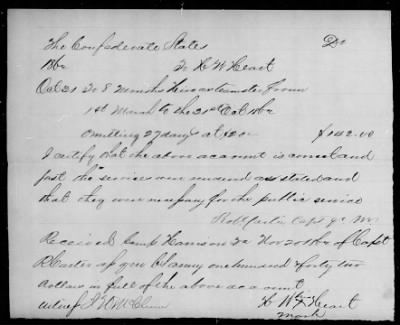 The Confederate States Dr
1862 To H W Heart
Oct 31 To 8 months hire as teamster from
1st March to the 31st Oct 1862
omitting 27 days at $20 $142.00
I certify that the above account is correct and
just the services were rendered as stated and
that they were necessary for the public service
Robt Carter Capt qr Mr
Received Camp Harrison Nov 20 1862 of Capt
R Carter one hundred & forty two
dollars in full of the above account
witness H W Heart
mark